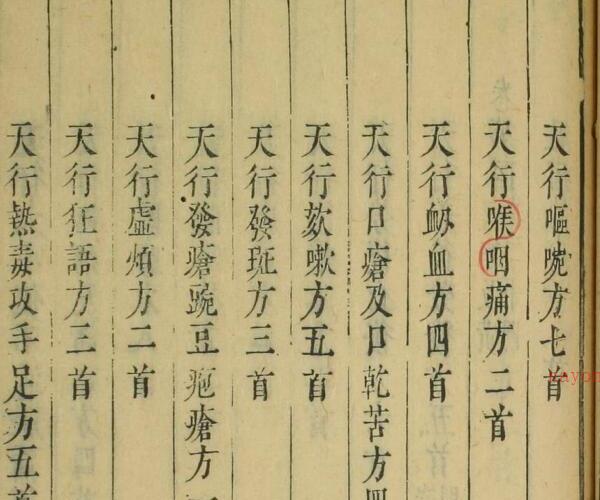 天行嘔啘方七首
天行喉咽痛方二首
天行衂血方四首
天行口瘡及口乾苦方四
天行欬嗽方五首
天行發斑方三首
天行發瘡豌豆疱瘡方
天行虛煩方二首
天行狂語方三首
天行熱毒攻手足方五首